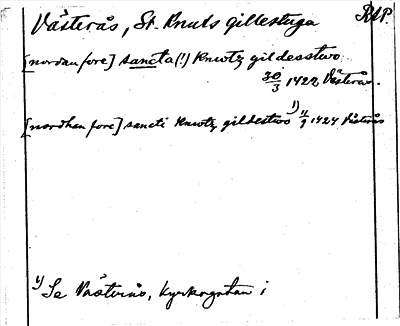 Västerås, St. Knuts gillestuga RAP.
[nordan fore] sancta (!) Knwtz gildesstwo
30/3 1422 Västerås.
[nordhan fore] sancti Knwtz gildestwo 1) 4/9 1424 Västerås
1) Se Västerås, Kyrkogatan i